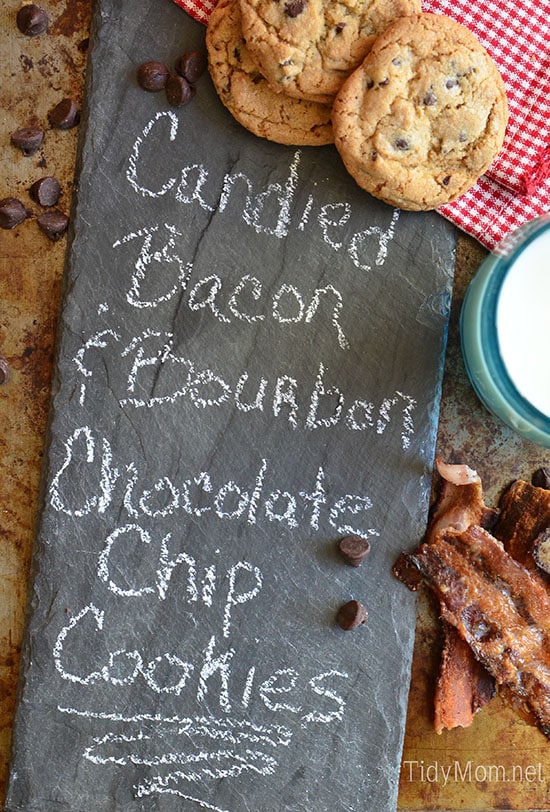 Candied
Bacon
& Bourbon
Chocolate
Chip
Cookies
TidyMom.net